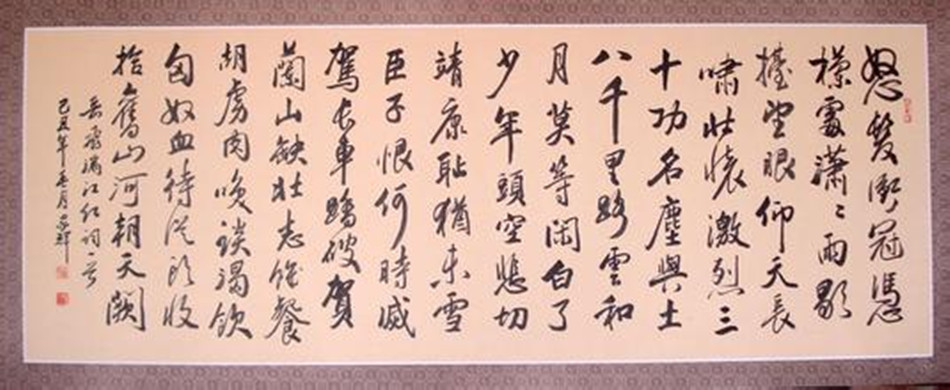 怒髮衝冠憑
欄處瀟〻雨歇
擡望眼仰天長
嘯壯懷激烈三
十功名塵與土
八千里路雲和
月莫等閑白了
少年頭空悲切
靖康耻猶未雪
臣子恨何時滅
駕長車踏破賀
蘭山缺壯志飢餐
胡虜肉笑談渴飲
匈奴血待從頭收
拾舊山河朝天闕
岳飛滿江紅詞一首
己丑年春月